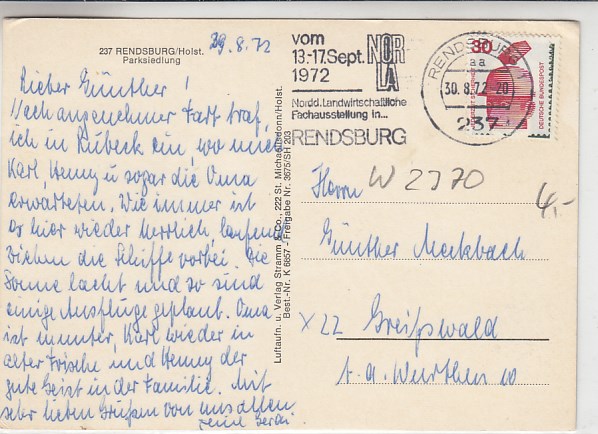 29.8.72
237 RENDSBURG/Holst.
Parksiedlung
Lieber Günther!
Nach angenehmer Fart traf
ich in Lübeck ein, wo mich
Karl, Henny u sogar die Oma
erwarteten. Wie immer ist
es hier wieder herrlich, laufend
ziehen die Schiffe vorbei. Die
Sonne lacht und so sind
einige Ausflüge geplant. Oma
ist munter, Karl wieder in
alter Frische und Henny der
gute Geist in der Familie. Mit
sehr lieben Grüßen von uns allen
Deine
Luftaufn. u. Verlag Stramm & Co., 222 St. Michaelisdonn/Holst.
Best.-Nr. K 6857 - Freigabe Nr. 3675/SH 203
vom
13.-17. Sept.
1972
NOR
LA
Nordd. Landwirtschaftliche
Fachausstellung in...
RENDSBURG
RENDSBURG
aa
30.8.72-20
237
30
DEUTSCHE BUNDESPOST
Herrn W 2370
4,-
Günther Meckbach
X 22 Greifswald